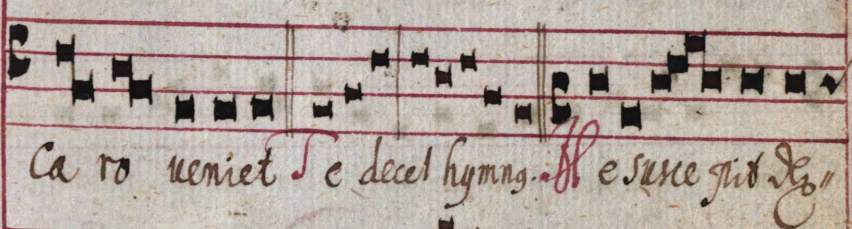 Ca ro ueniet Te decet hymng. Me susce pit dex"